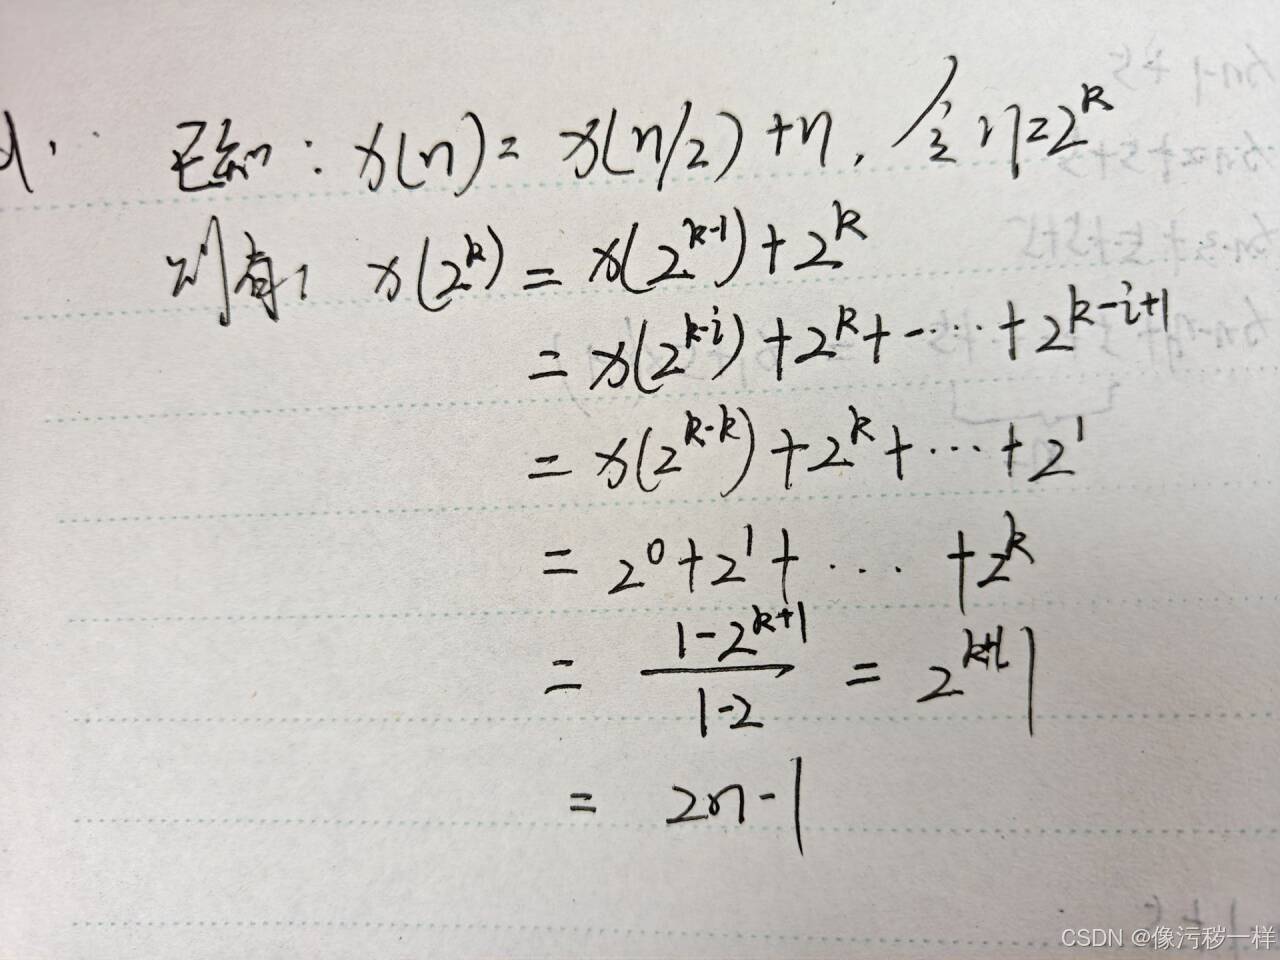 d. 已知: x(n) = x(n/2) + n, 令 n=2^k
则有, x(2^k) = x(2^{k-1}) + 2^k
= x(2^{k-i}) + 2^k + ····· + 2^{k-i+1}
= x(2^{k-k}) + 2^k + ··· + 2^1
= 2^0 + 2^1 + ··· + 2^k
= \frac{1-2^{k+1}}{1-2} = 2^{k+1} - 1
= 2n - 1
CSDN @像污秽一样